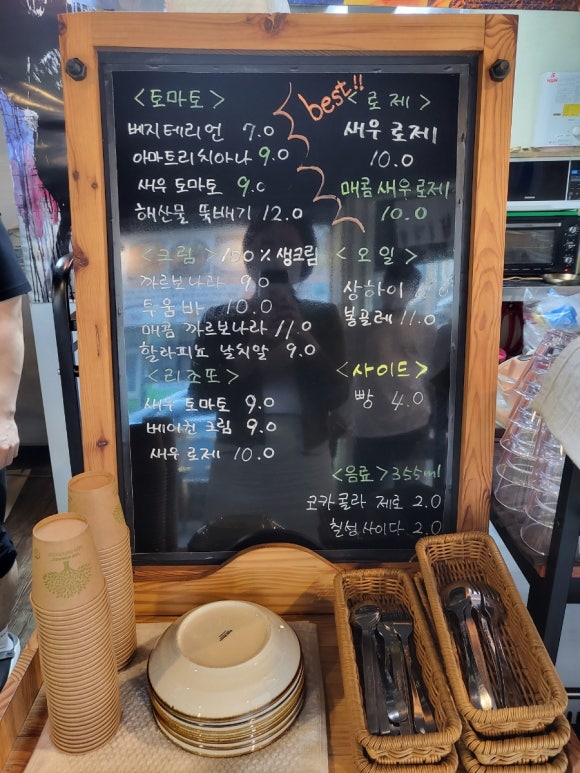 <토마토>
베지테리언 7.0
아마트리치아나 9.0
새우 토마토 9.0
해산물 뚝배기 12.0
best!!
<로제>
새우 로제
10.0
매콤 새우 로제
10.0
<크림> 100% 생크림
까르보나라 9.0
투움바 10.0
매콤 까르보나라 11.0
할라피뇨 날치알 9.0
<오일>
상하이
봉골레 11.0
<리조또>
새우 토마토 9.0
베이컨 크림 9.0
새우 로제 10.0
<사이드>
빵 4.0
<음료> 355ml
코카콜라 제로 2.0
칠성사이다 2.0